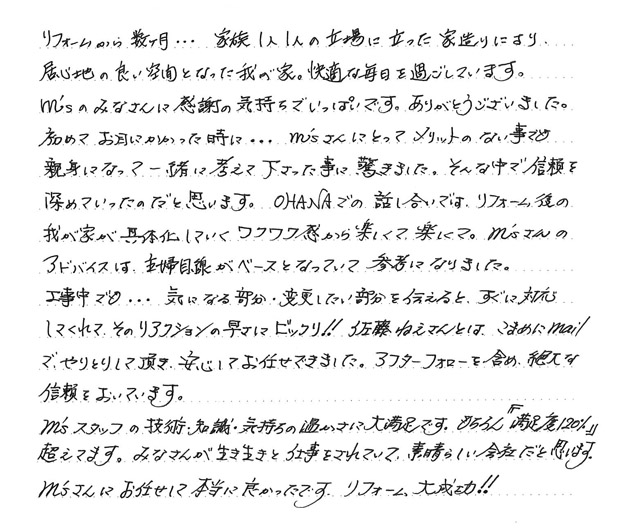 リフォームから数ヶ月… 家族1人1人の立場に立った家造りにより、
居心地の良い空間となった我が家。快適な毎日を過ごしています。
M'sのみなさんに感謝の気持ちでいっぱいです。ありがとうございました。
初めてお目にかかった時に… M'sさんにとってメリットのない事でも
親身になって一緒に考えて下さった事に驚きました。そんな中で信頼を
深めていったのだと思います。OHANAでの話し合いでは、リフォーム後の
我が家が具体化していくワクワク感から楽しくて楽しくて。M'sさんの
アドバイスは、主婦目線がベースとなっていて参考になりました。
工事中でも… 気になる部分・変更したい部分を伝えると、すぐに対応
してくれて、そのリアクションの早さにビックリ!! 佐藤ねえさんとは、こまめにmail
でやりとりして頂き、安心してお任せできました。アフターフォローを含め、絶大な
信頼をおいています。
M'sスタッフの技術・知識・気持ちの温かさに大満足です。もちろん『満足度120%』
超えてます。みなさんが生き生きと仕事をされていて、素晴らしい会社だと思います。
M'sさんにお任せして本当に良かったです。リフォーム、大成功!!